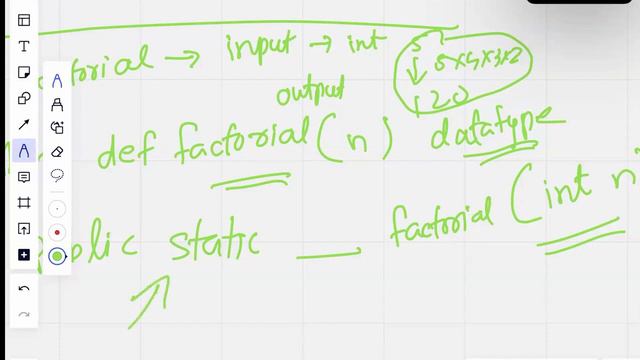 torial → input → int 5 ↓ 5×4×3×2 120
output
def factorial (n) datatype
public static __ factorial (int n)